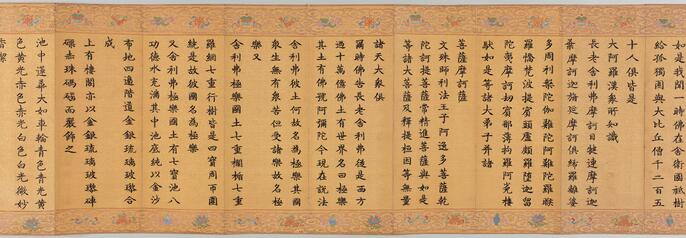 如是我聞一時佛在舍衛國祇樹
給孤獨園與大比丘僧千二百五
十人俱皆是
大阿羅漢衆所知識
長老舍利弗摩訶目犍連摩訶迦
葉摩訶迦旃延摩訶俱絺羅離婆
多周利槃陀伽難陀阿難陀羅睺
羅憍梵波提賓頭盧頗羅墮迦留
陀夷摩訶劫賓那薄拘羅阿㝹樓
馱如是等諸大弟子并諸
菩薩摩訶薩
文殊師利法王子阿逸多菩薩乾
陀訶提菩薩常精進菩薩與如是
等諸大菩薩及釋提桓因等無量
諸天大衆俱
爾時佛告長老舍利弗從是西方
過十萬億佛土有世界名曰極樂
其土有佛號阿彌陀今現在說法
舍利弗彼土何故名為極樂其國
衆生無有衆苦但受諸樂故名極
樂又
舍利弗極樂國土七重欄楯七重
羅網七重行樹皆是四寶周帀圍
繞是故彼國名為極樂
又舍利弗極樂國土有七寶池八
功德水充滿其中池底純以金沙
布地四邊階道金銀琉璃玻瓈合
成
上有樓閣亦以金銀琉璃玻瓈硨
磲赤珠碼碯而嚴飾之
池中蓮華大如車輪青色青光黃
色黃光赤色赤光白色白光微妙
香潔